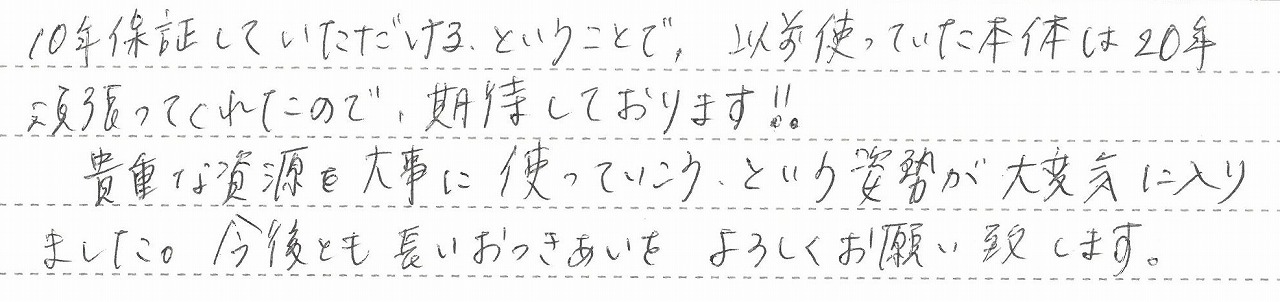 10年保証していただける、ということで、以前使っていた本体は20年
頑張ってくれたので、期待しております!!
貴重な資源を大事に使っていこう、という姿勢が大変気に入り
ました。今後とも長いおつきあいをよろしくお願い致します。